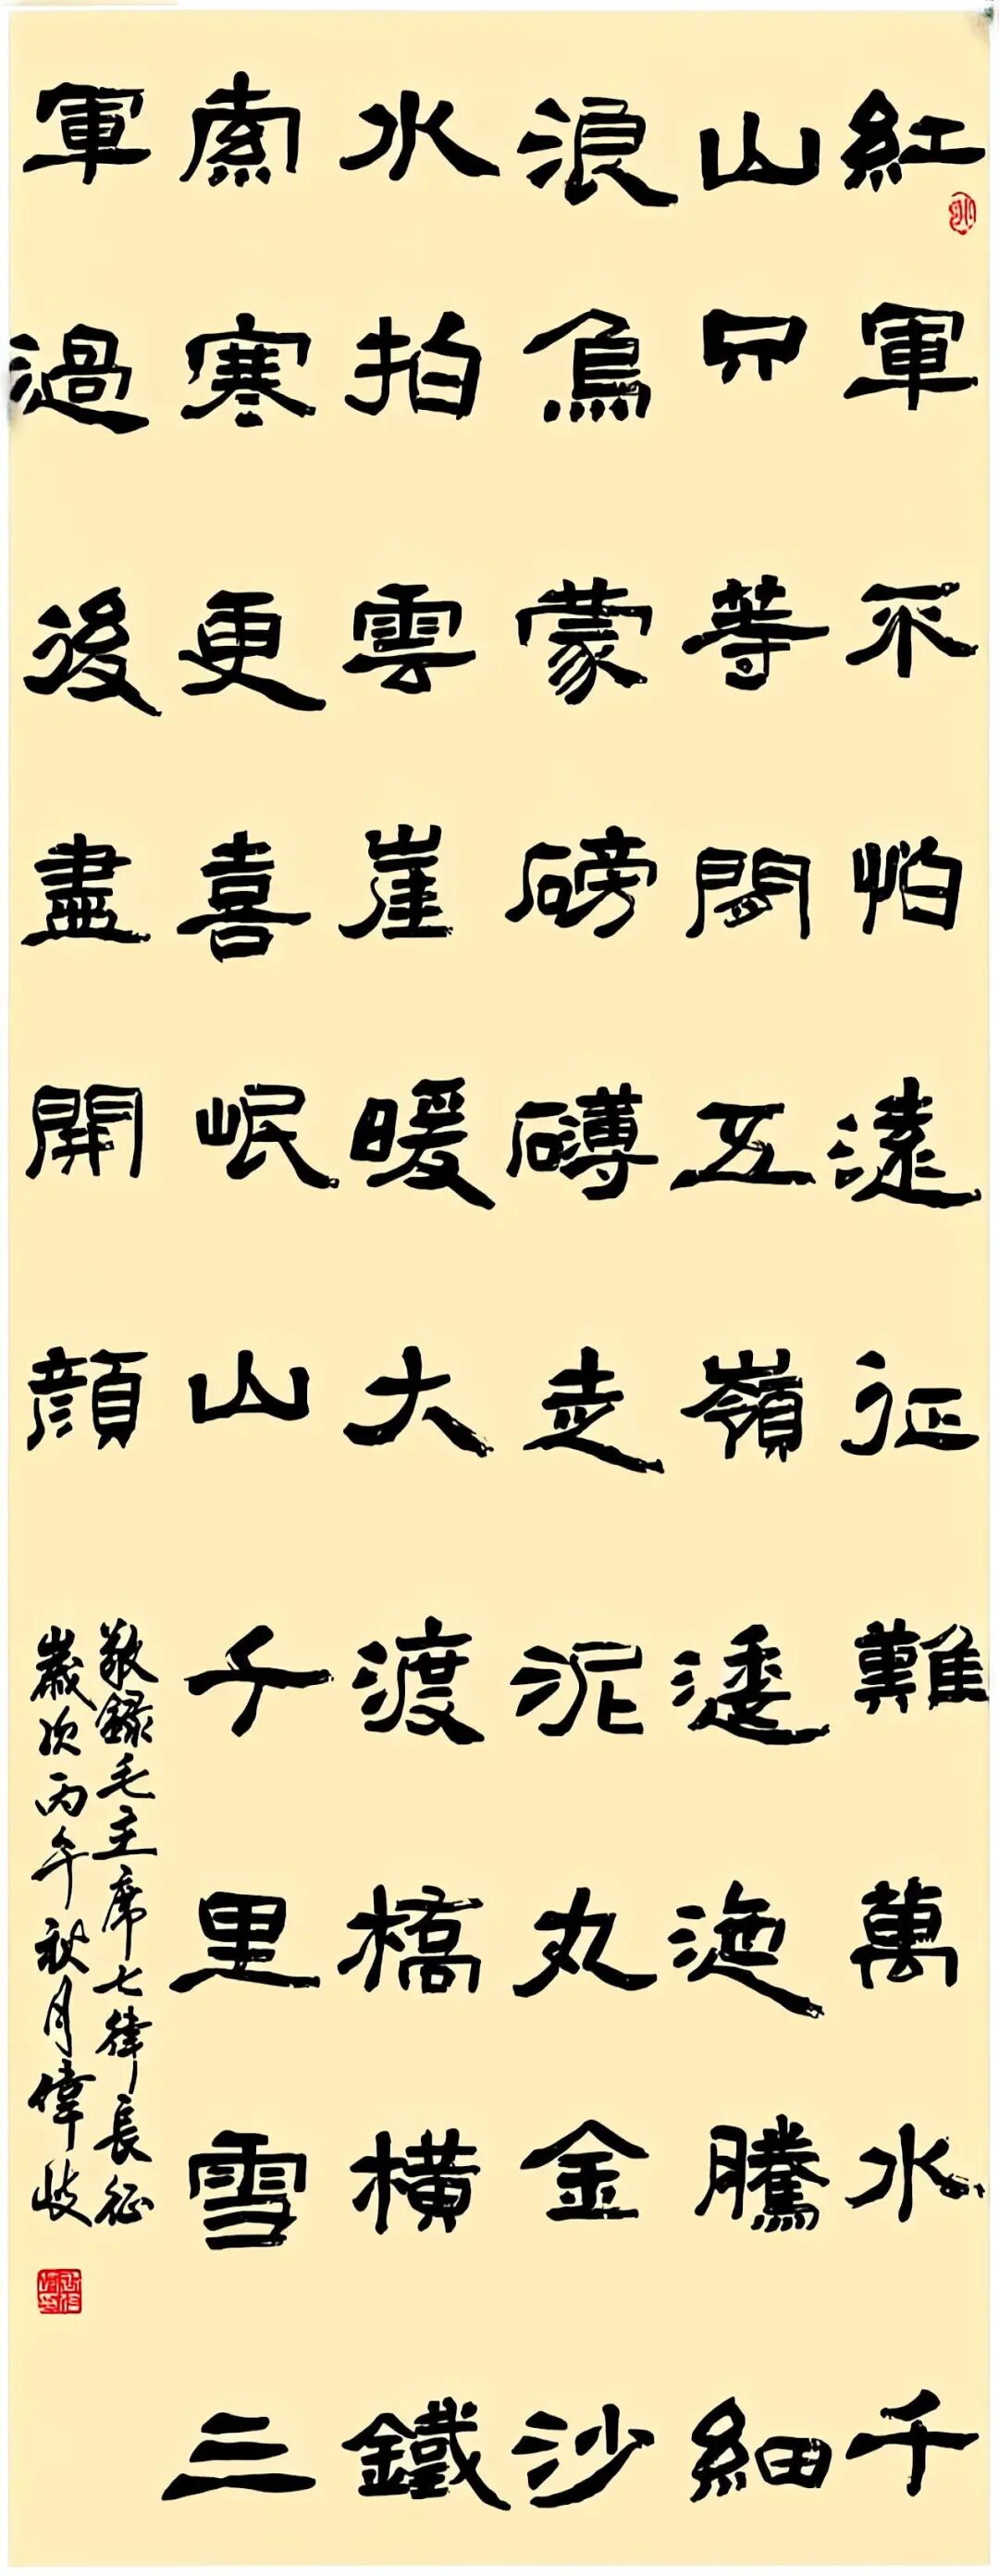 紅軍不怕遠征難萬水千
山只等閒五嶺逶迤騰細
浪烏蒙磅礴走泥丸金沙
水拍雲崖暖大渡橋橫鐵
索寒更喜岷山千里雪三
軍過後盡開顏
敬録毛主席七律長征
歲次丙午秋月偉岐